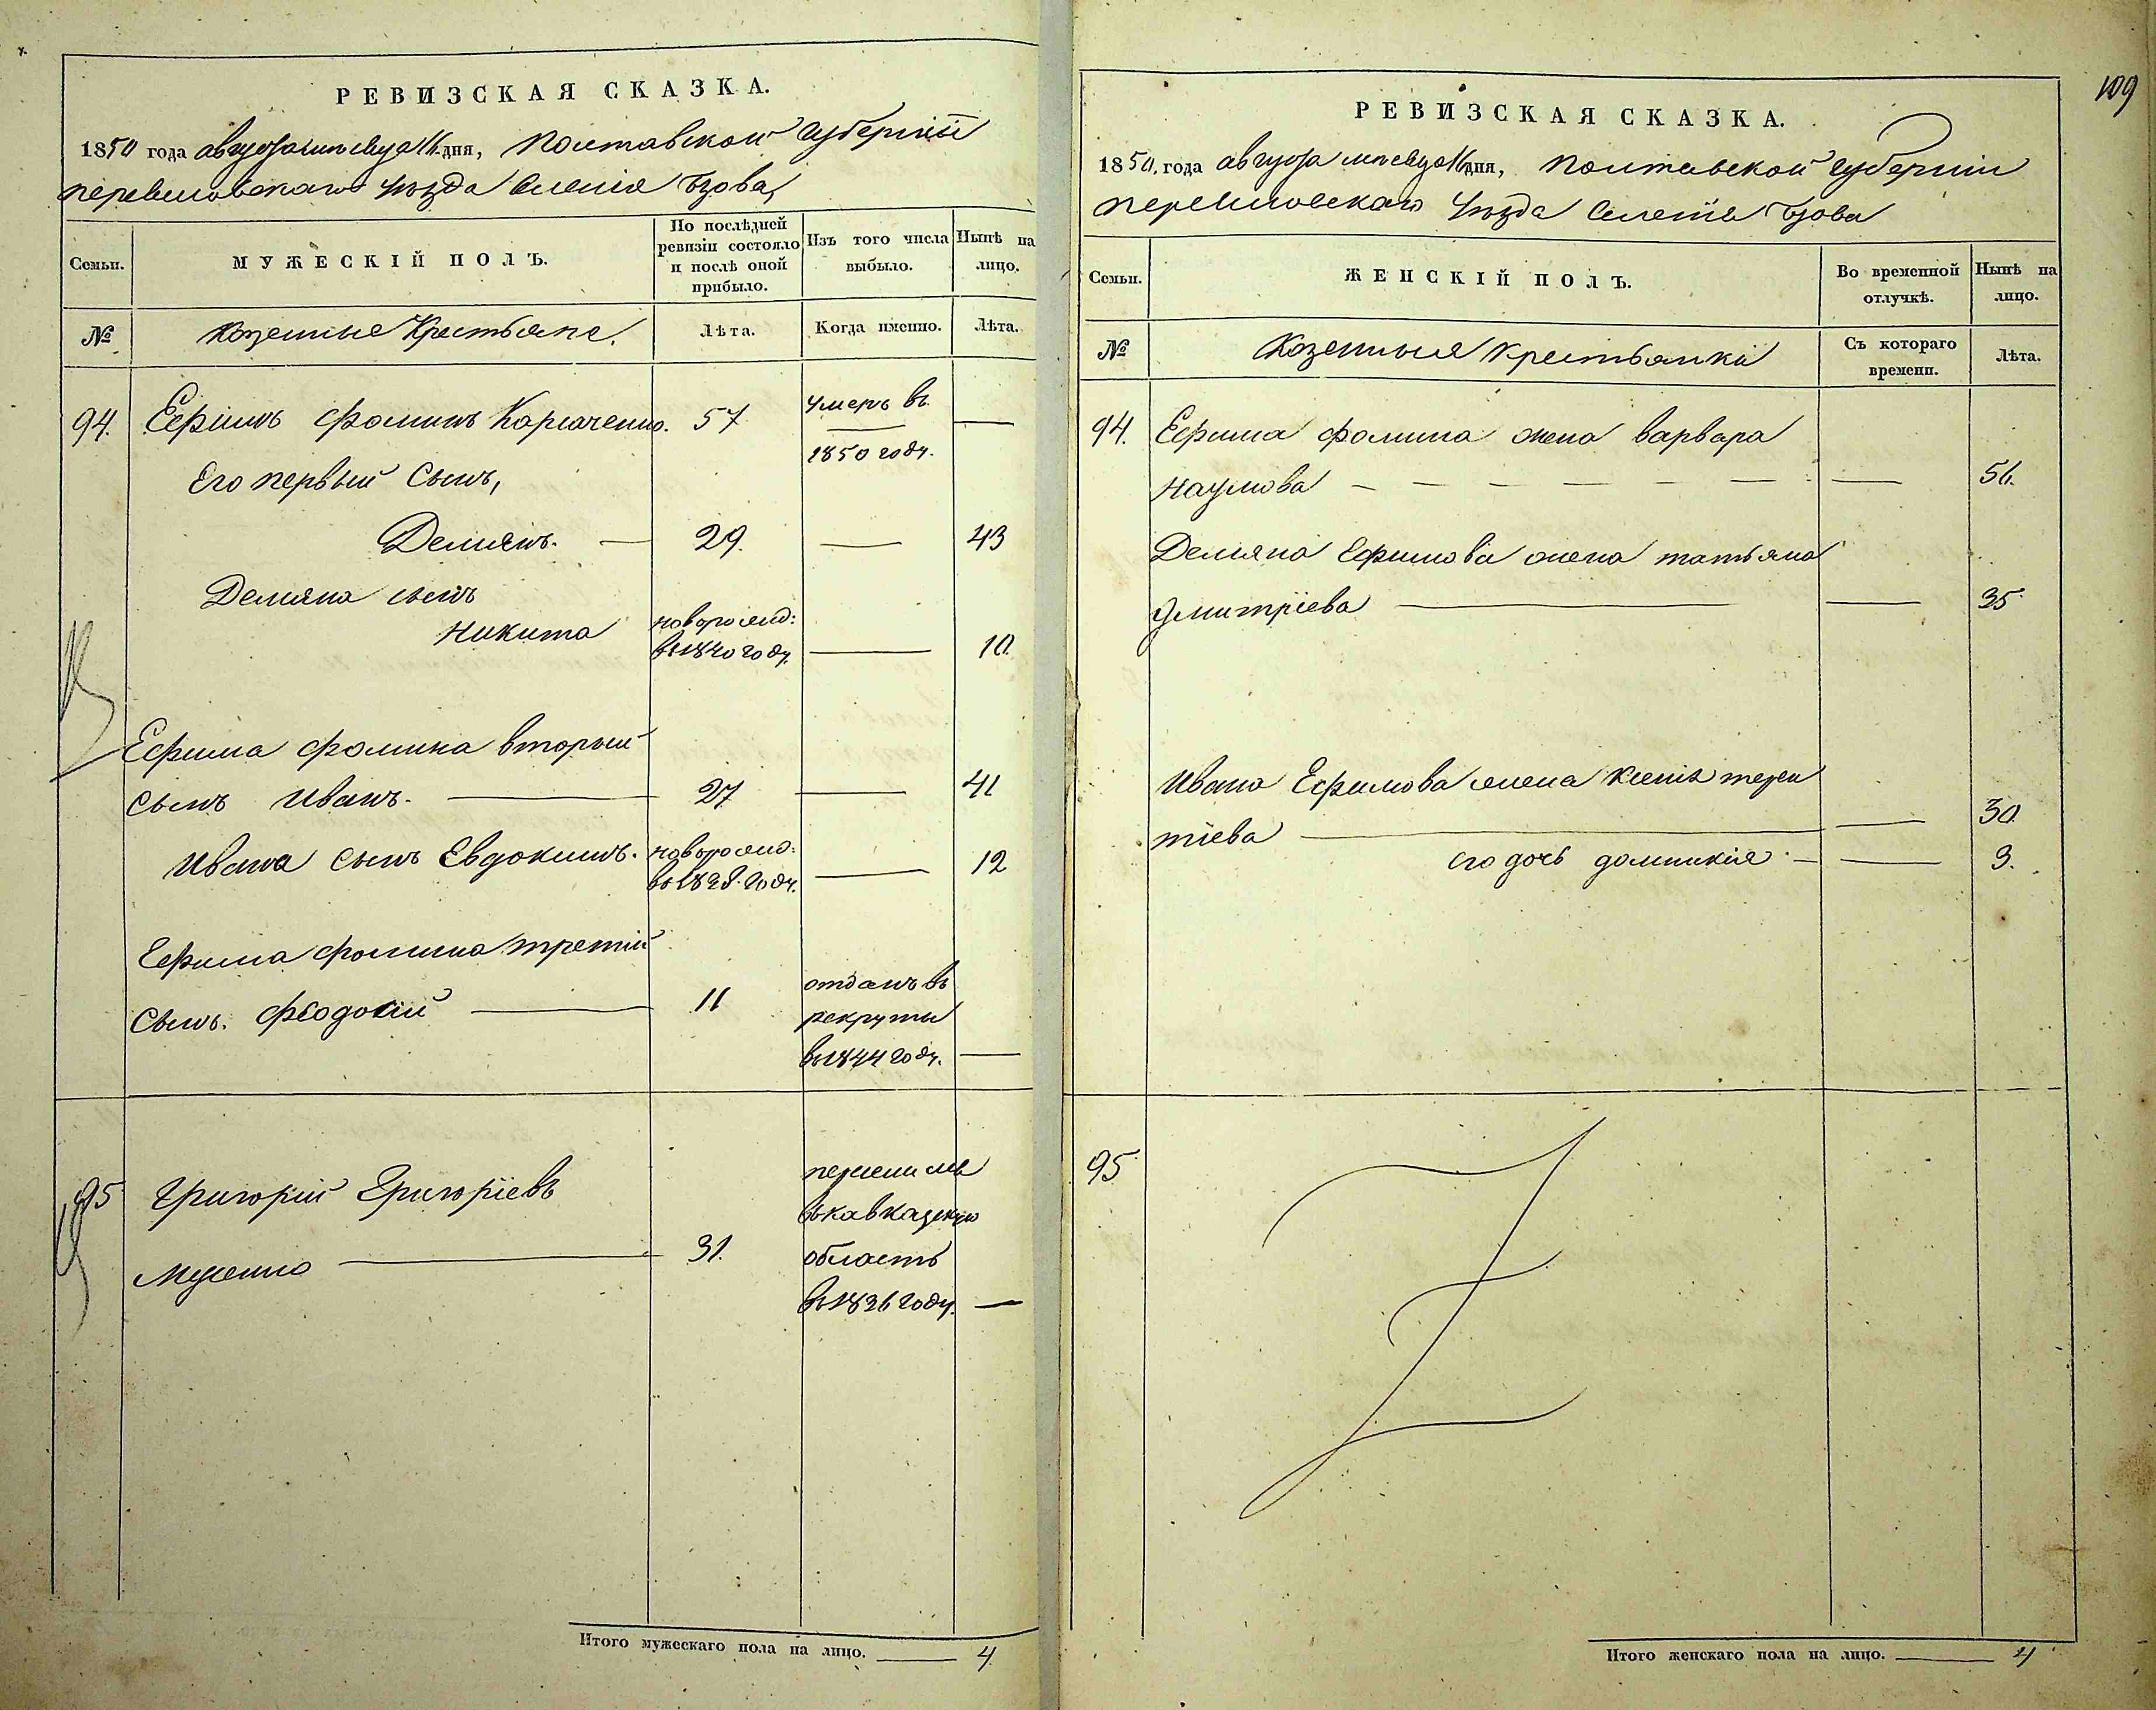 109
РЕВИЗСКАЯ СКАЗКА.
1850 года августа месяца 16 дня, Полтавской Губерніи
переяславскаго уѣзда Селенія Бзова,
Семьи.
МУЖЕСКІЙ ПОЛЪ.
По послѣдней ревизіи состояло и послѣ оной прибыло.
Изъ того числа выбыло.
Нынѣ на лицо.
№
Казенные Крестьяне.
Лѣта.
Когда именно.
Лѣта.
94. Ефимъ Фоминъ 57 умеръ въ 1850 году. —
Его первый Сынъ,
Демянъ. — 29. — 43
Демяна сынъ
Никита новорожд: въ 1840 году. — 10.
Ефима Фомина вторый
сынъ Иванъ. — 27 — 41
Ивана сынъ Евдокимъ. новорожд: въ 1838 году. — 12
Ефима Фомина третій
Сынъ. Феодосій — 11 отданъ въ рекруты въ 1844 году. —
95 Григорій Григоріевъ
— 31. въ кавказскую область въ 1836 году. —
Итого мужескаго пола на лицо. — 4
РЕВИЗСКАЯ СКАЗКА.
1850. года августа месяца 16 дня, Полтавской Губерніи
переяславскаго уѣзда Селенія Бзова
Семьи.
ЖЕНСКІЙ ПОЛЪ.
Во временной отлучкѣ.
Нынѣ на лицо.
№
Казенныя крестьянки
Съ котораго времени.
Лѣта.
94. Ефима Фомина жена варвара
Наумова — — — — — — — — 56.
Демяна Ефимова жена татьяна
дмитріева — — 35
Ивана Ефимова жена ксенія терен
тіева — — 30.
его дочь домникія. — — 3.
95
Итого женскаго пола на лицо. — 4